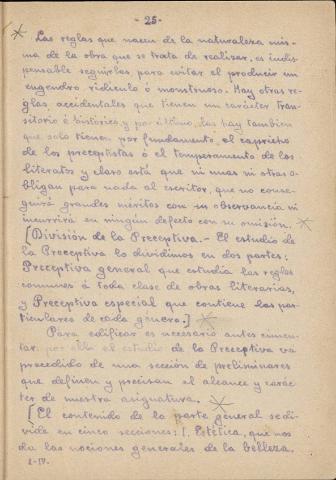 - 25 -
Las reglas que nacen de la naturaleza mis-
ma de la obra que se trata de realizar, es indis-
pensable seguirlas, para evitar el producir un
engendro ridículo ó monstruoso. Hay otras re-
glas accidentales que tienen un carácter tran-
sitorio ó histórico, y por último, las hay tambien
que solo tienen por fundamento, el capricho
de los preceptistas ó el temperamento de los
literatos y claro está que ni unas ni otras o-
bligan para nada al escritor, que no conse-
guirá grandes méritos con su observancia ni
incurrirá en ningún defecto con su omisión.
[División de la Preceptiva.- El estudio de
la Preceptiva lo dividimos en dos partes:
Preceptiva general que estudia las reglas
comunes á toda clase de obras literarias,
y Preceptiva especial que contiene las par-
ticulares de cada género.]
Para edificar es necesario antes cimen-
tar: por ello el estudio de la Preceptiva va
precedido de una sección de preliminares
que definen y precisan el alcance y carác-
ter de nuestra asignatura.
[El contenido de la parte general se di-
vide en cinco secciones: I. Estética, que nos
da las nociones generales de la belleza.
I-IV.